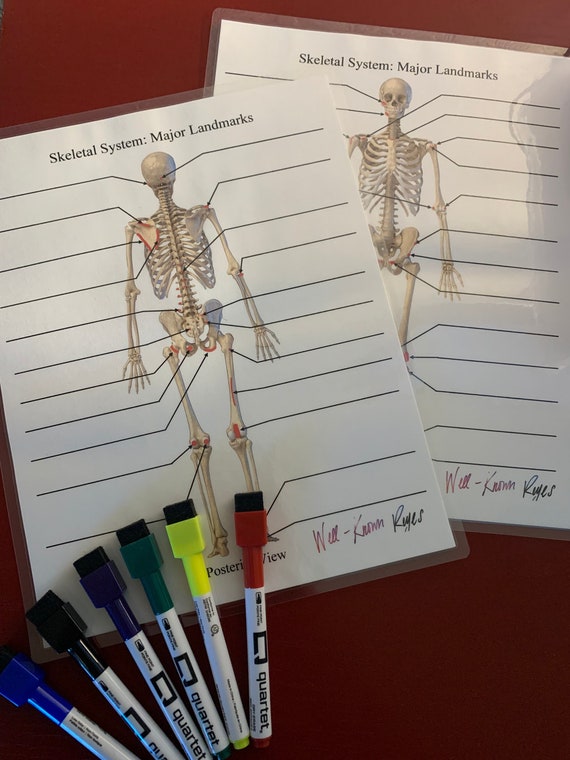 Skeletal System: Major Landmarks
Well-Known Reyes
Skeletal System: Major Landmarks
Well-Known Reyes
Posterior View
quartet
quartet
quartet
quartet